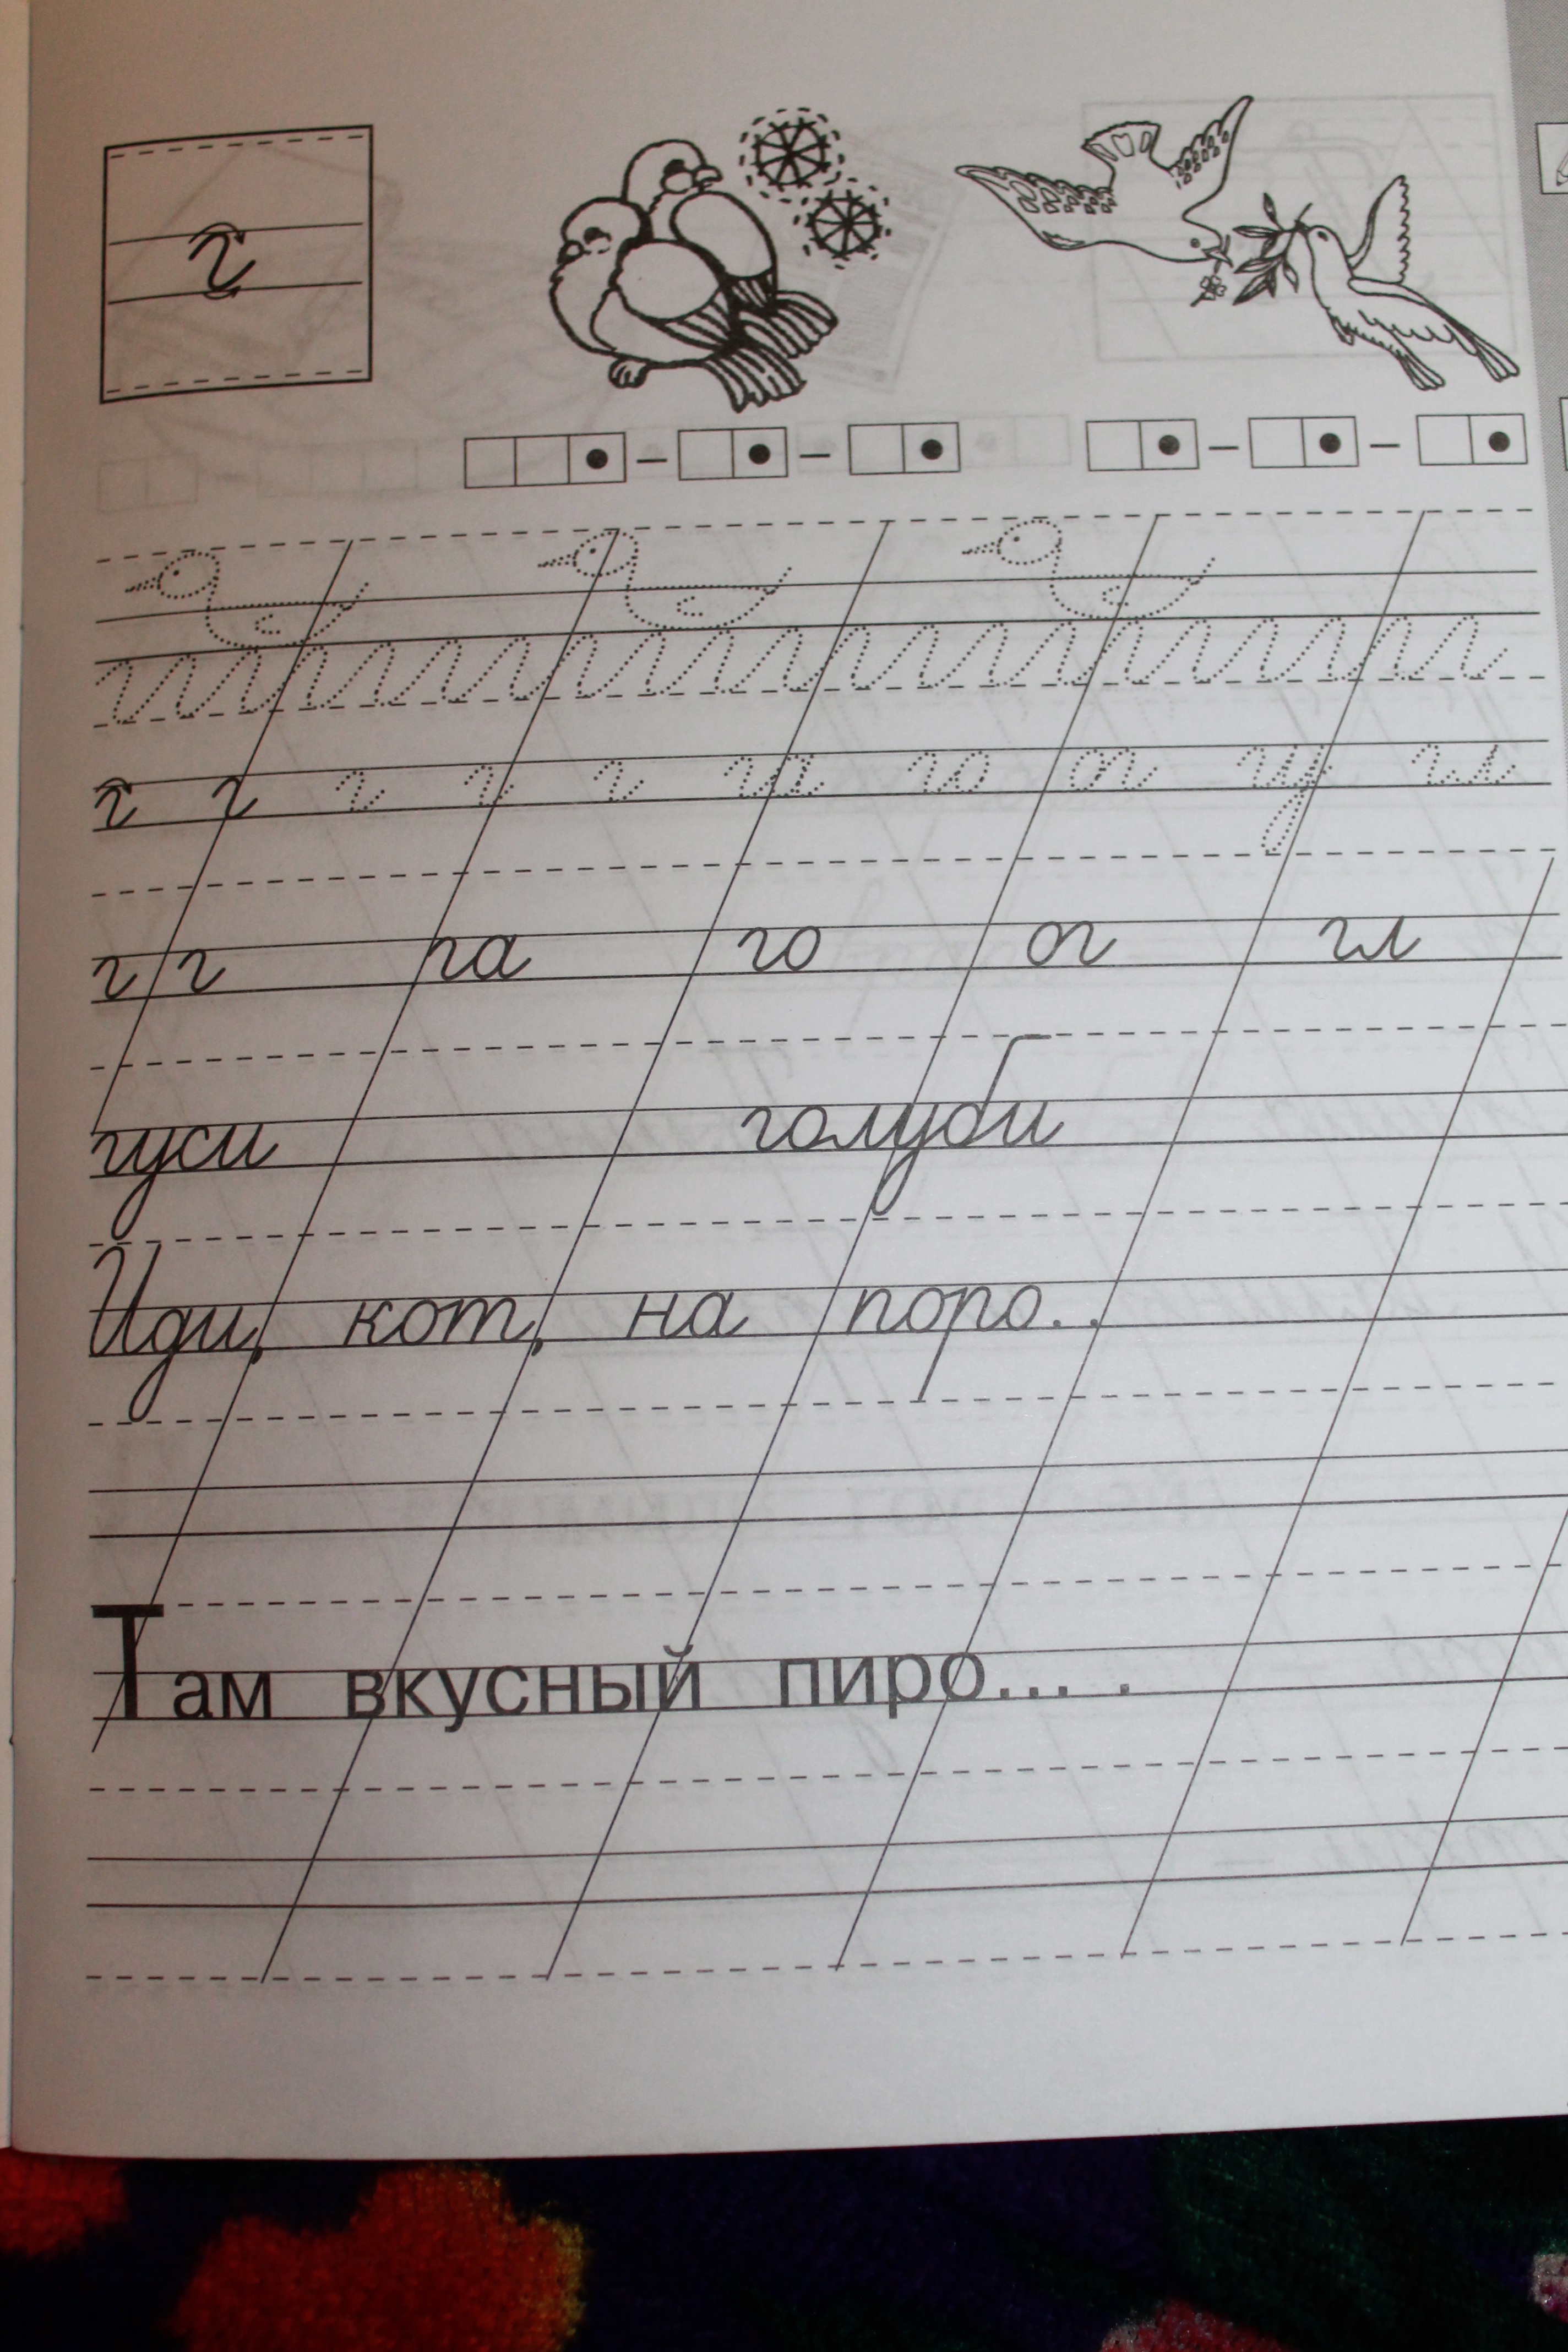 г
г г г г г га го ог гу гл
г г га го ог гл
гуси голуби
Иди, кот, на поро..
Там вкусный пиро... .